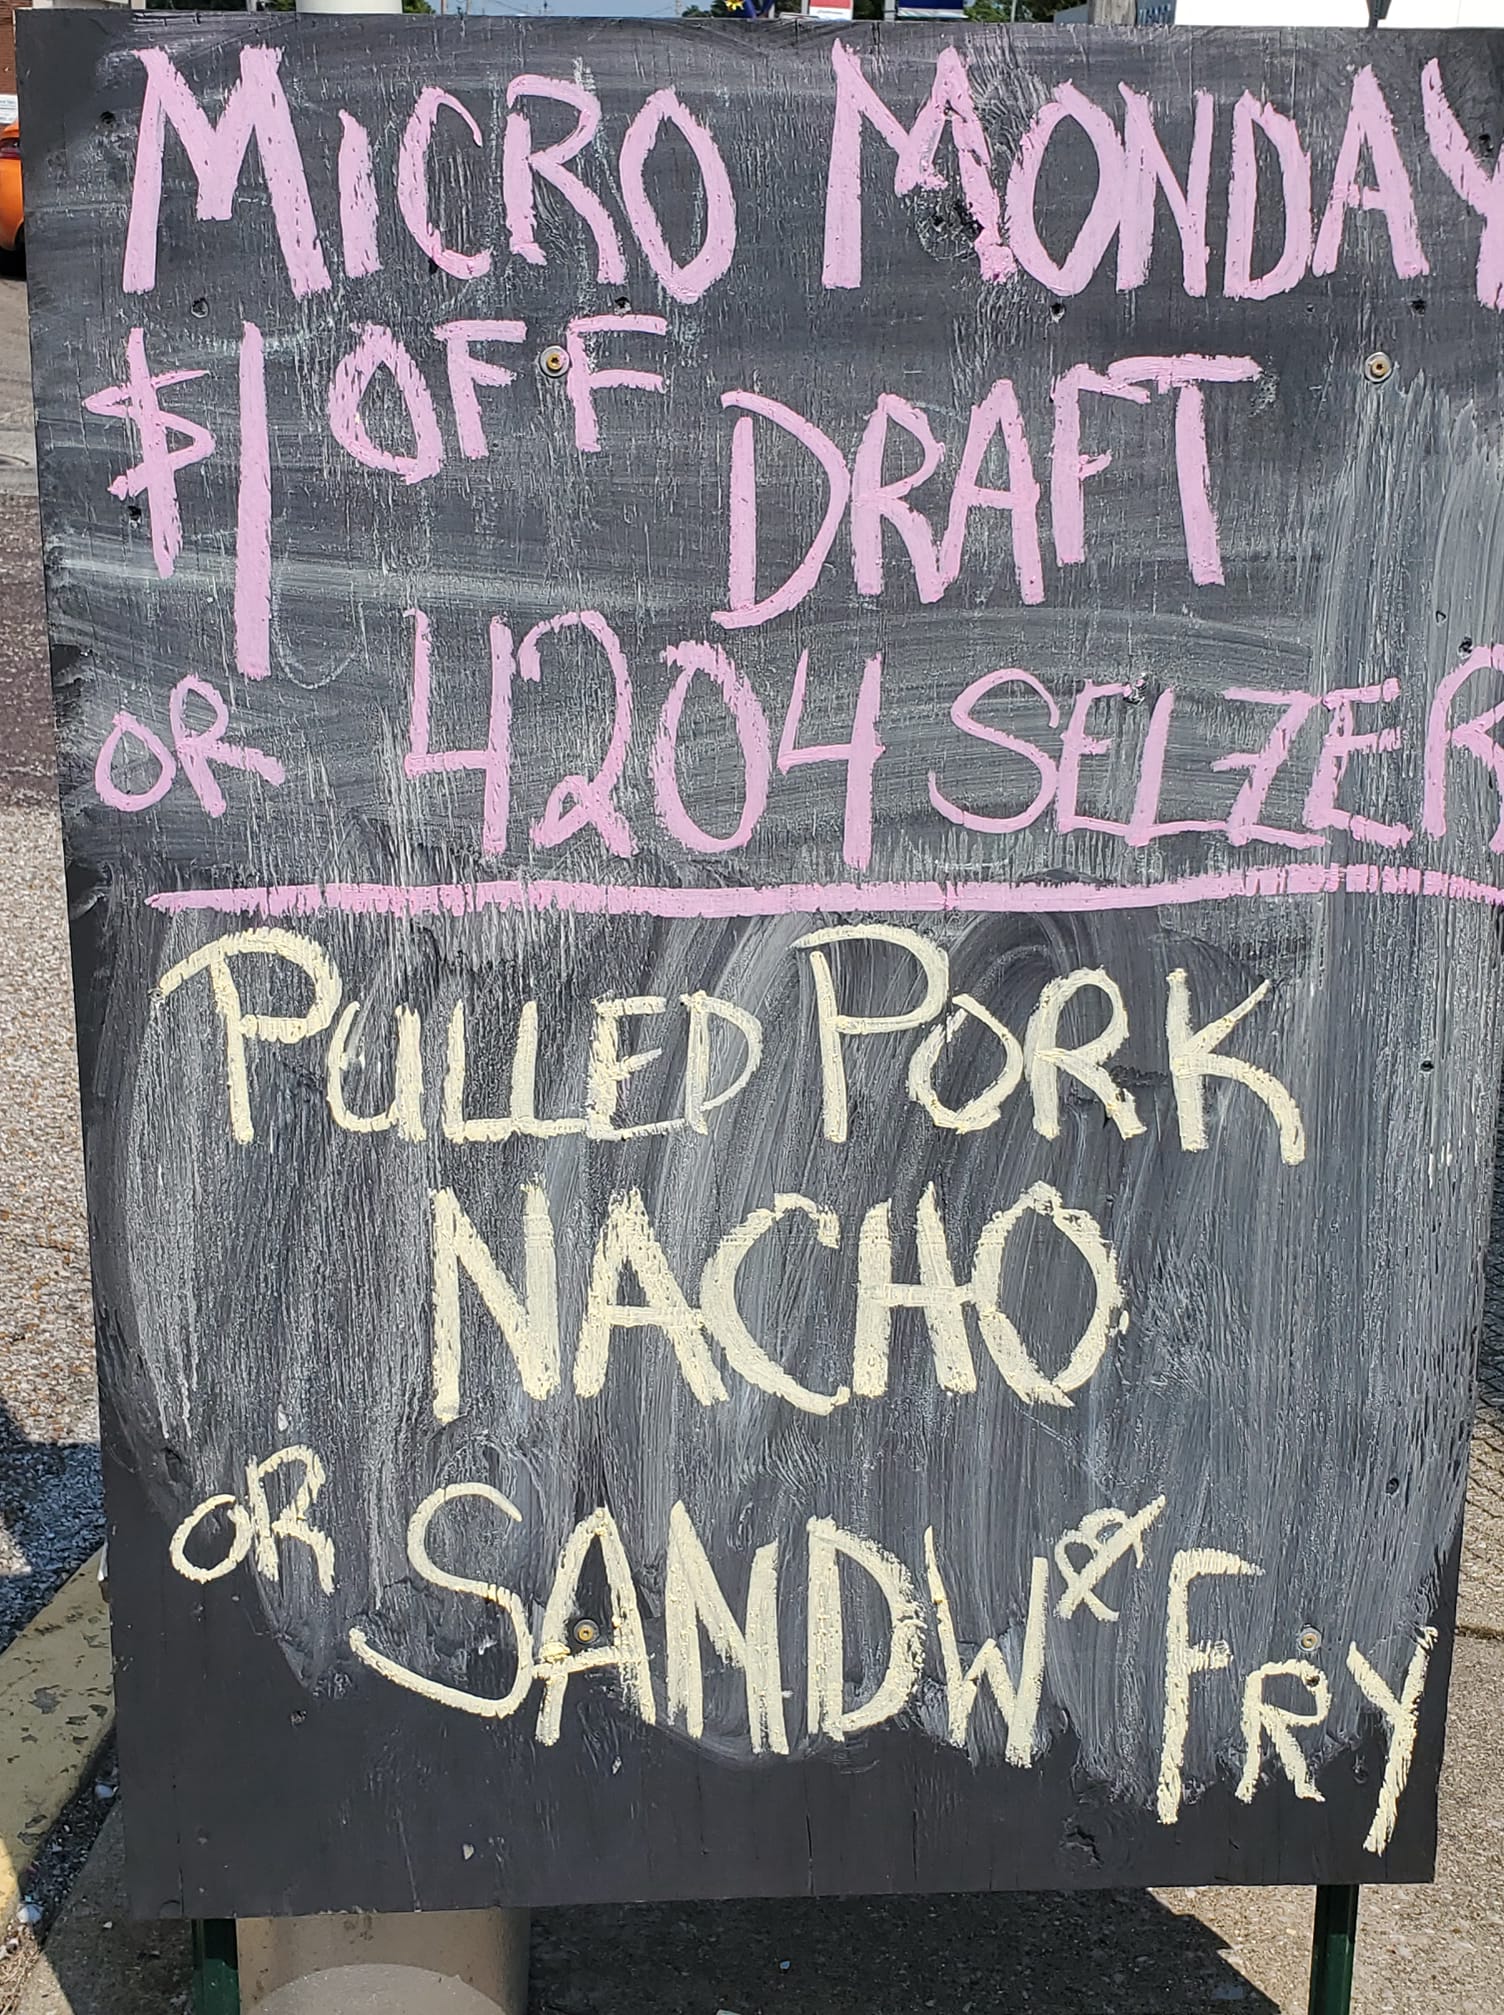 MICRO MONDAY
$1 OFF DRAFT
OR 4204 SELZER
PULLED PORK
NACHO
OR SANDW & FRY